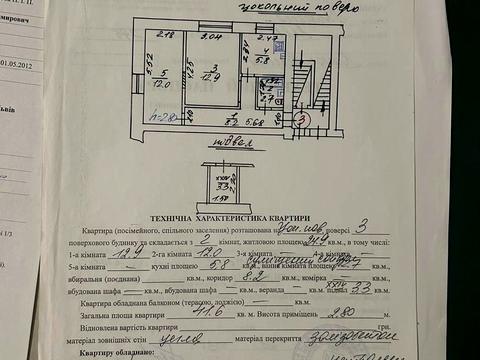 і П. І. П.
имирович
01.05.2012
Львів
і 1/3
цокольний поверх
2.18
3.04
2.47
5.52
4.25
2.84
5
12.0
3
12.9
4
5.8
2.7
h=2.82
1
8.2
5.68
3
підвал
XXIV
3.3
1.50
ТЕХНІЧНА ХАРАКТЕРИСТИКА КВАРТИРИ
Квартира (посімейного, спільного заселення) розташована на цок. пов. поверсі 3
поверхового будинку та складається з 2 кімнат, житловою площею 24.9 кв.м, в тому числі:
1-а кімната 12.9 2-га кімната 12.0 3-я кімната – 4-а кімната –
5-а кімната – кв.м, кухні площею 5.8 кв.м, ванна кімната площею 2.7 кв.м,
вбиральні (поєднана) кв.м, коридор 8.2 кв.м, комірка – кв.м,
вбудована шафа – кв.м, вбудована шафа – кв.м, веранда – кв.м XXIV підвал 3.3 кв.м.
Квартира обладнана балконом (терасою, лоджією) – кв.м.
Загальна площа квартири 41.6 кв.м. Висота приміщень 2.80 м.
Відновна вартість квартири грн
матеріал зовнішніх стін цегла матеріал перекриття залізобетон
Квартиру обладнано: